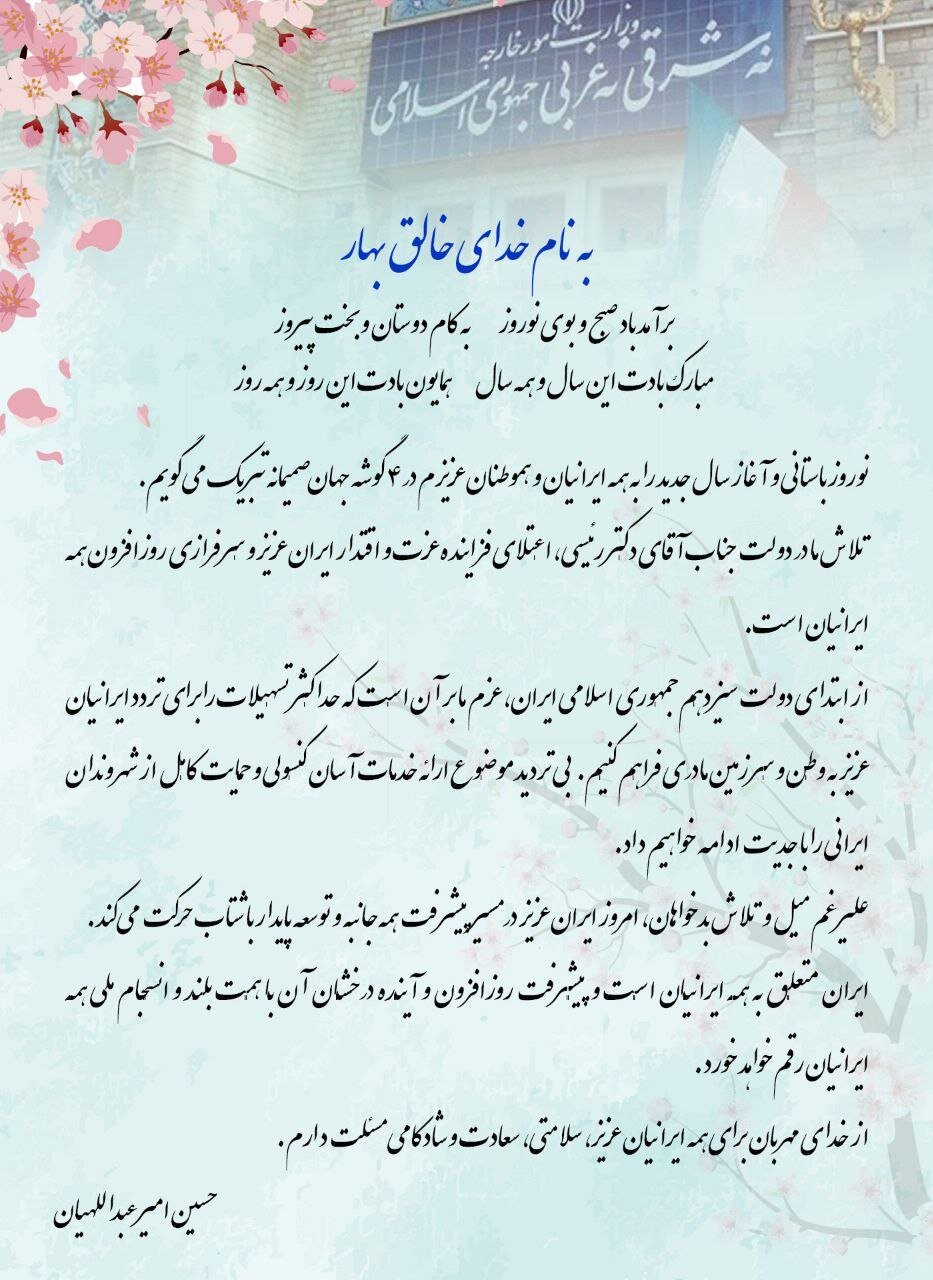 وزارت امور خارجه
نه شرقی نه غربی جمهوری اسلامی
به نام خدای خالق بهار
برآمد باد صبح و بوی نوروز به کام دوستان و بخت پیروز
مبارک بادت این سال و همه سال همایون بادت این روز و همه روز
نوروز باستانی و آغاز سال جدید را به همه ایرانیان و هموطنان عزیزم در ۴ گوشه جهان صمیمانه تبریک می گویم.
تلاش ما در دولت جناب آقای دکتر رئیسی، اعتلای فزاینده عزت و اقتدار ایران عزیز و سرفرازی روزافزون همه
ایرانیان است.
از ابتدای دولت سیزدهم جمهوری اسلامی ایران، عزم ما بر آن است که حداکثر تسهیلات را برای تردد ایرانیان
عزیز به وطن و سرزمین مادری فراهم کنیم. بی تردید موضوع ارائه خدمات آسان کنسولی و حمایت کامل از شهروندان
ایرانی را با جدیت ادامه خواهیم داد.
علیرغم میل و تلاش بدخواهان، امروز ایران عزیز در مسیر پیشرفت همه جانبه و توسعه پایدار با شتاب حرکت می کند.
ایران متعلق به همه ایرانیان است و پیشرفت روزافزون و آینده درخشان آن با همت بلند و انسجام ملی همه
ایرانیان رقم خواهد خورد.
از خدای مهربان برای همه ایرانیان عزیز، سلامتی، سعادت و شادکامی مسئلت دارم.
حسین امیرعبداللهیان